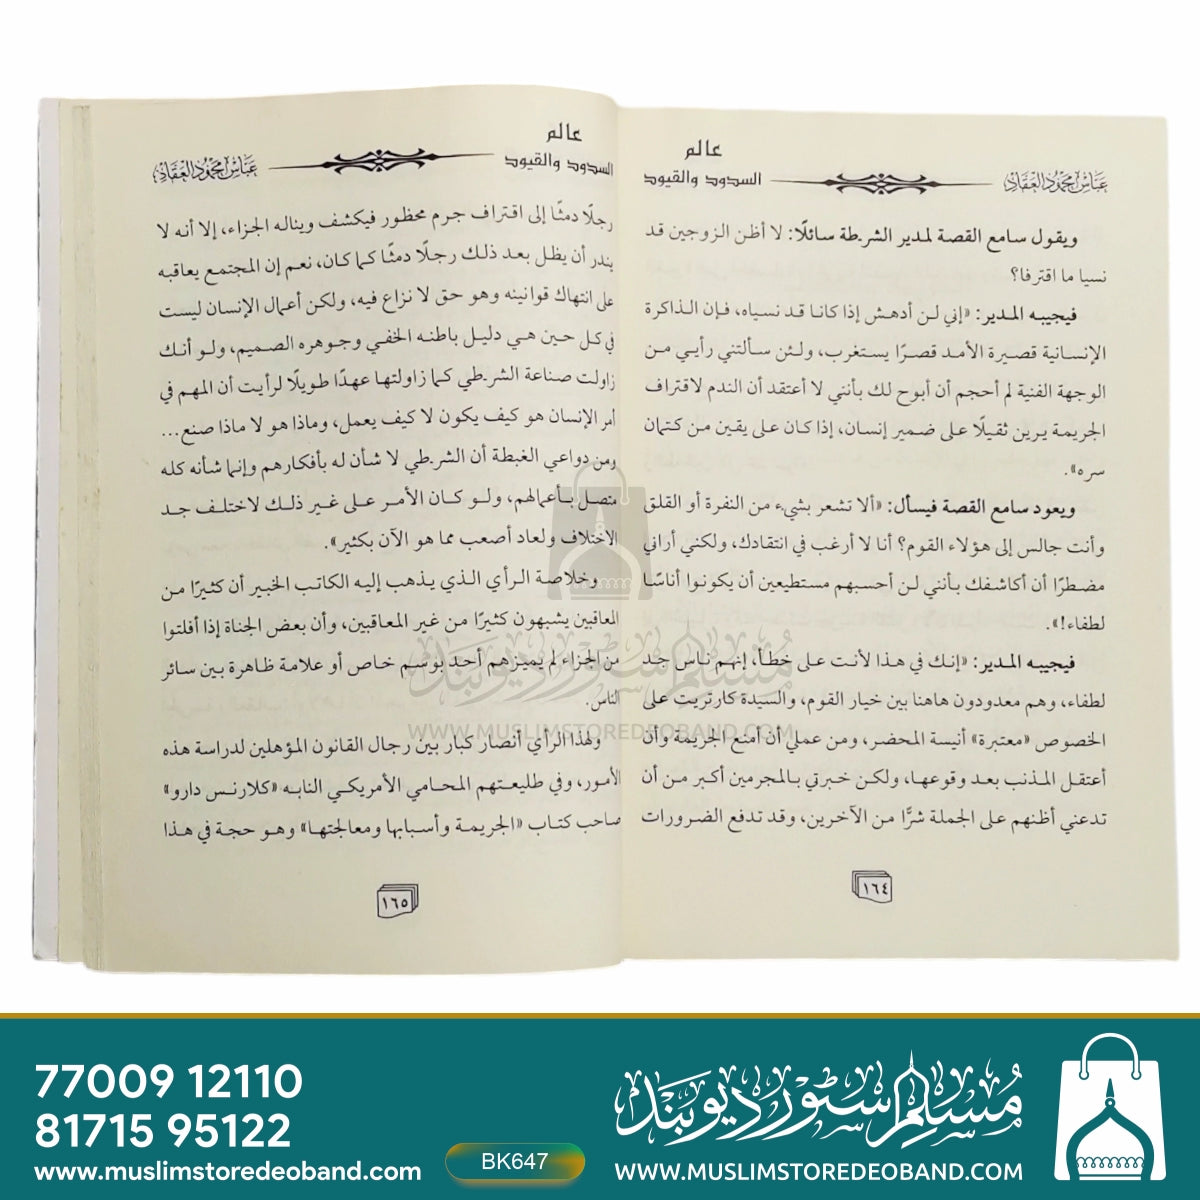 عالم
السدود والقيود
عباس محمود العقاد
ويقول سامع القصة لمدير الشرطة سائلًا: لا أظن الزوجين قد
نسيا ما اقترفا؟
فيجيبه المدير: «إني لن أدهش إذا كانا قد نسياه، فإن الذاكرة
الإنسانية قصيرة الأمد قصرًا يستغرب، ولئن سألتني رأيي من
الوجهة الفنية لم أحجم أن أبوح لك بأنني لا أعتقد أن الندم لاقتراف
الجريمة يرين ثقيلًا على ضمير إنسان، إذا كان على يقين من كتمان
سره».
ويعود سامع القصة فيسأل: «ألا تشعر بشيء من النفرة أو القلق
وأنت جالس إلى هؤلاء القوم؟ أنا لا أرغب في انتقادك، ولكني أراني
مضطرًا أن أكاشفك بأنني لن أحسبهم مستطيعين أن يكونوا أناسًا
لطفاء!».
فيجيبه المدير: «إنك في هذا لأنت على خطأ، إنهم ناس جد
لطفاء، وهم معدودون هاهنا بين خيار القوم، والسيدة كارتريت على
الخصوص «معتبرة» أنيسة المحضر، ومن عملي أن أمنع الجريمة وأن
أعتقل المذنب بعد وقوعها، ولكن خبرتي بالمجرمين أكبر من أن
تدعني أظنهم على الجملة شرًّا من الآخرين، وقد تدفع الضرورات
١٦٤
عالم
السدود والقيود
عباس محمود العقاد
رجلًا دمثًا إلى اقتراف جرم محظور فيكشف ويناله الجزاء، إلا أنه لا
يندر أن يظل بعد ذلك رجلًا دمثًا كما كان، نعم إن المجتمع يعاقبه
على انتهاك قوانينه وهو حق لا نزاع فيه، ولكن أعمال الإنسان ليست
في كل حين هي دليل باطنه الخفي وجوهره الصميم، ولو أنك
زاولت صناعة الشرطي كما زاولتها عهدًا طويلًا لرأيت أن المهم في
أمر الإنسان هو كيف يكون لا كيف يعمل، وماذا هو لا ماذا صنع...
ومن دواعي الغبطة أن الشرطي لا شأن له بأفكارهم وإنما شأنه كله
متصل بأعمالهم، ولو كان الأمر على غير ذلك لاختلف جد
الاختلاف ولعاد أصعب مما هو الآن بكثير».
وخلاصة الرأي الذي يذهب إليه الكاتب الخبير أن كثيرًا من
المعاقبين يشبهون كثيرًا من غير المعاقبين، وأن بعض الجناة إذا أفلتوا
من الجزاء لم يميزهم أحد بوسم خاص أو علامة ظاهرة بين سائر
الناس.
ولهذا الرأي أنصار كبار بين رجال القانون المؤهلين لدراسة هذه
الأمور، وفي طليعتهم المحامي الأمريكي النابه «كلارنس دارو»
صاحب كتاب «الجريمة وأسبابها ومعالجتها» وهو حجة في هذا
١٦٥
مسلم ستور ديوبند
WWW.MUSLIMSTOREDEOBAND.COM
77009 12110
81715 95122
www.muslimstoredeoband.com
BK647
مسلم ستور ديوبند
WWW.MUSLIMSTOREDEOBAND.COM